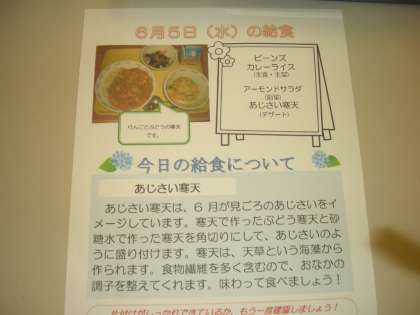 6月5日（水）の給食
ビーンズ
カレーライス
(主食・主菜)
アーモンドサラダ
(副菜)
あじさい寒天
(デザート)
りんごとぶどうの寒天
です。
今日の給食について
あじさい寒天
あじさい寒天は、6 月が見ごろのあじさいをイ
メージしています。寒天で作ったぶどう寒天と砂
糖水で作った寒天を角切りにして、あじさいのよう
に盛り付けます。寒天は、天草という海藻から
作られます。食物繊維を多く含むので、おなかの
調子を整えてくれます。味わって食べましょう！
片付けがしっかりできているか、もう一度確認しましょう！